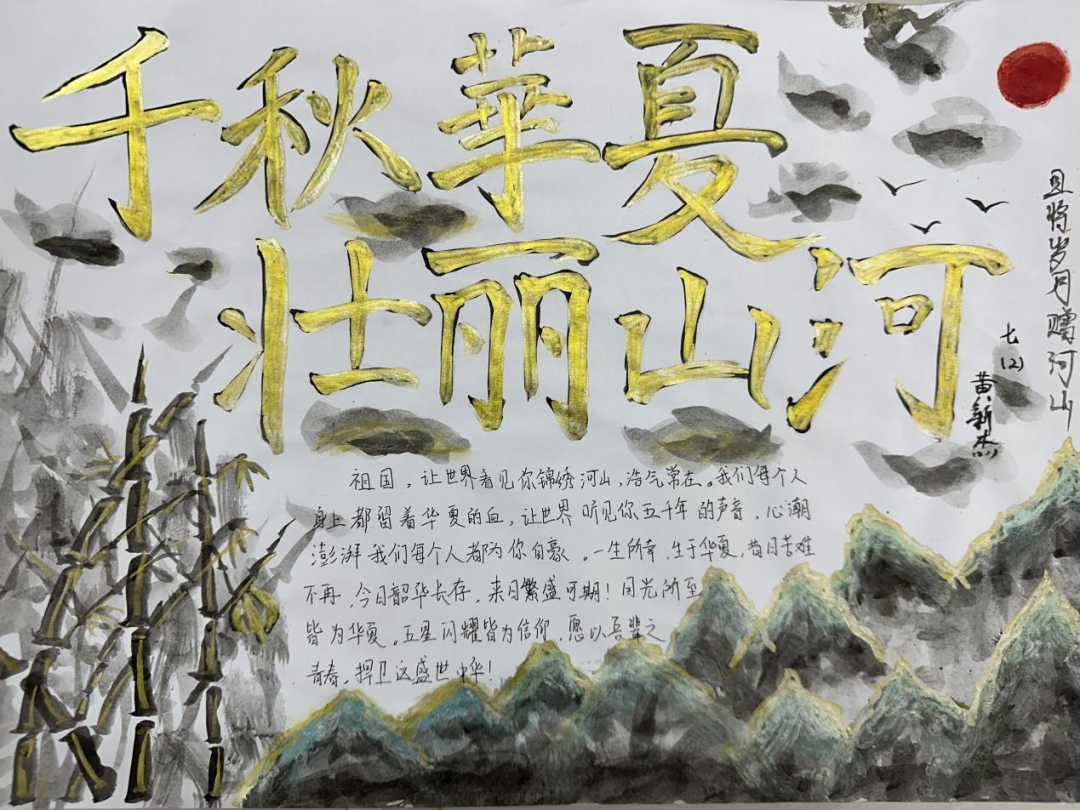 千秋華夏
壮丽山河
且将岁月赠河山
七(2)
黄新杰
祖国，让世界看见你锦绣河山，浩气常在。我们每个人
身上都留着华夏的血，让世界听见你五千年的声音，心潮
澎湃我们每个人都为你自豪。一生所幸，生于华夏，昔日苦难
不再，今日韶华长存，来日繁盛可期！目光所至
皆为华夏。五星闪耀皆为信仰，愿以吾辈之
青春，捍卫这盛世中华！